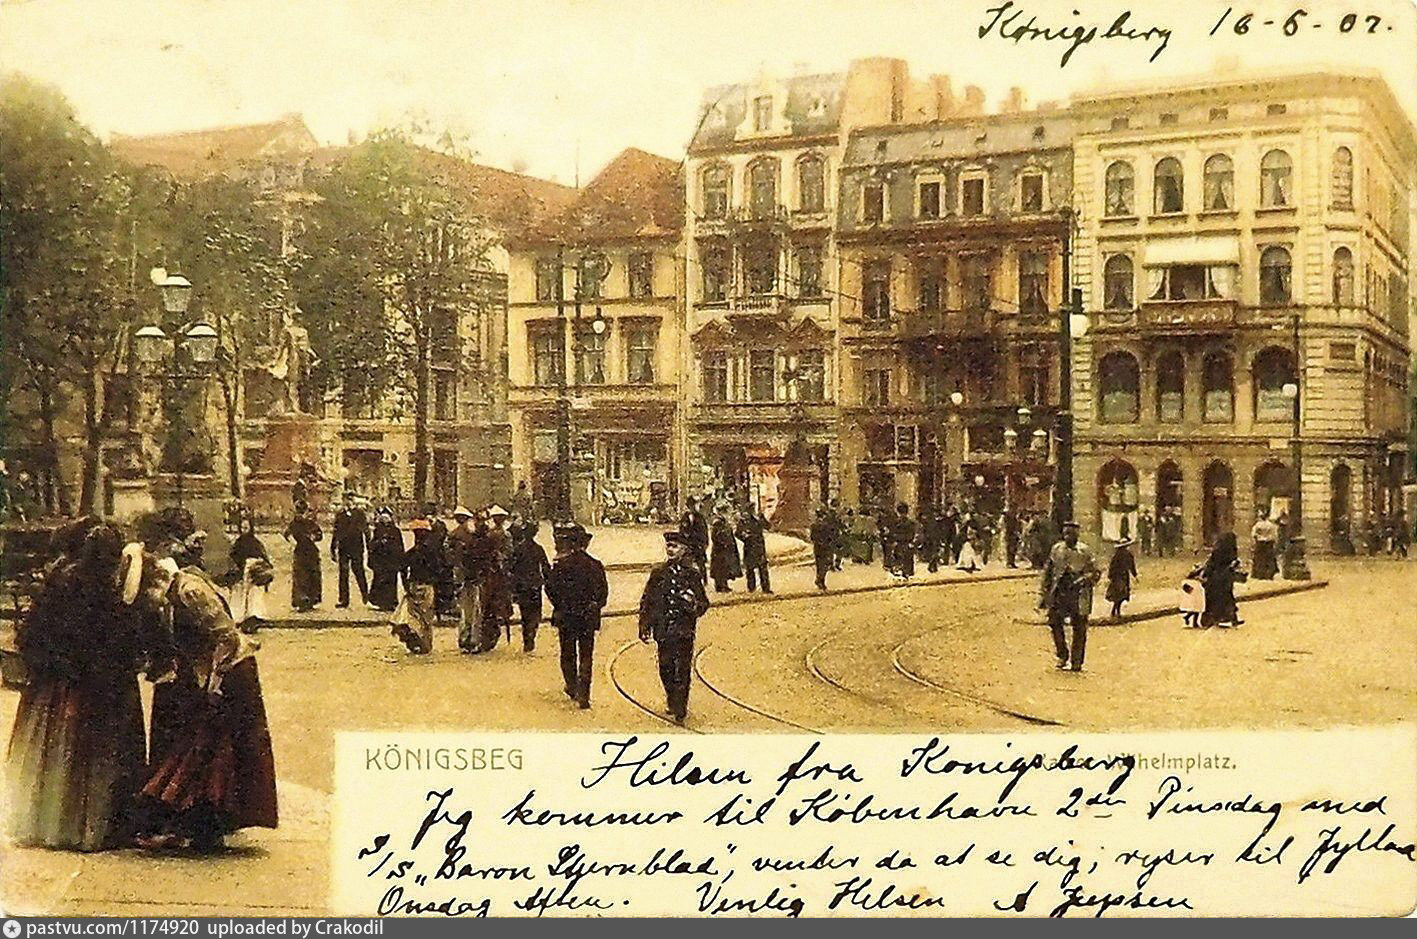 Königsberg 16-5-07.
KÖNIGSBEG
Hilsen fra Konigsberg
helmplatz.
Jeg kommer til Köbenhavn 2den Pinsedag med
S/S „Baron Stjernblad", venter da at se dig; rejser til Jylland
Onsdag Aften. Venlig Hilsen A Jepsen
pastvu.com/1174920 uploaded by Crakodil